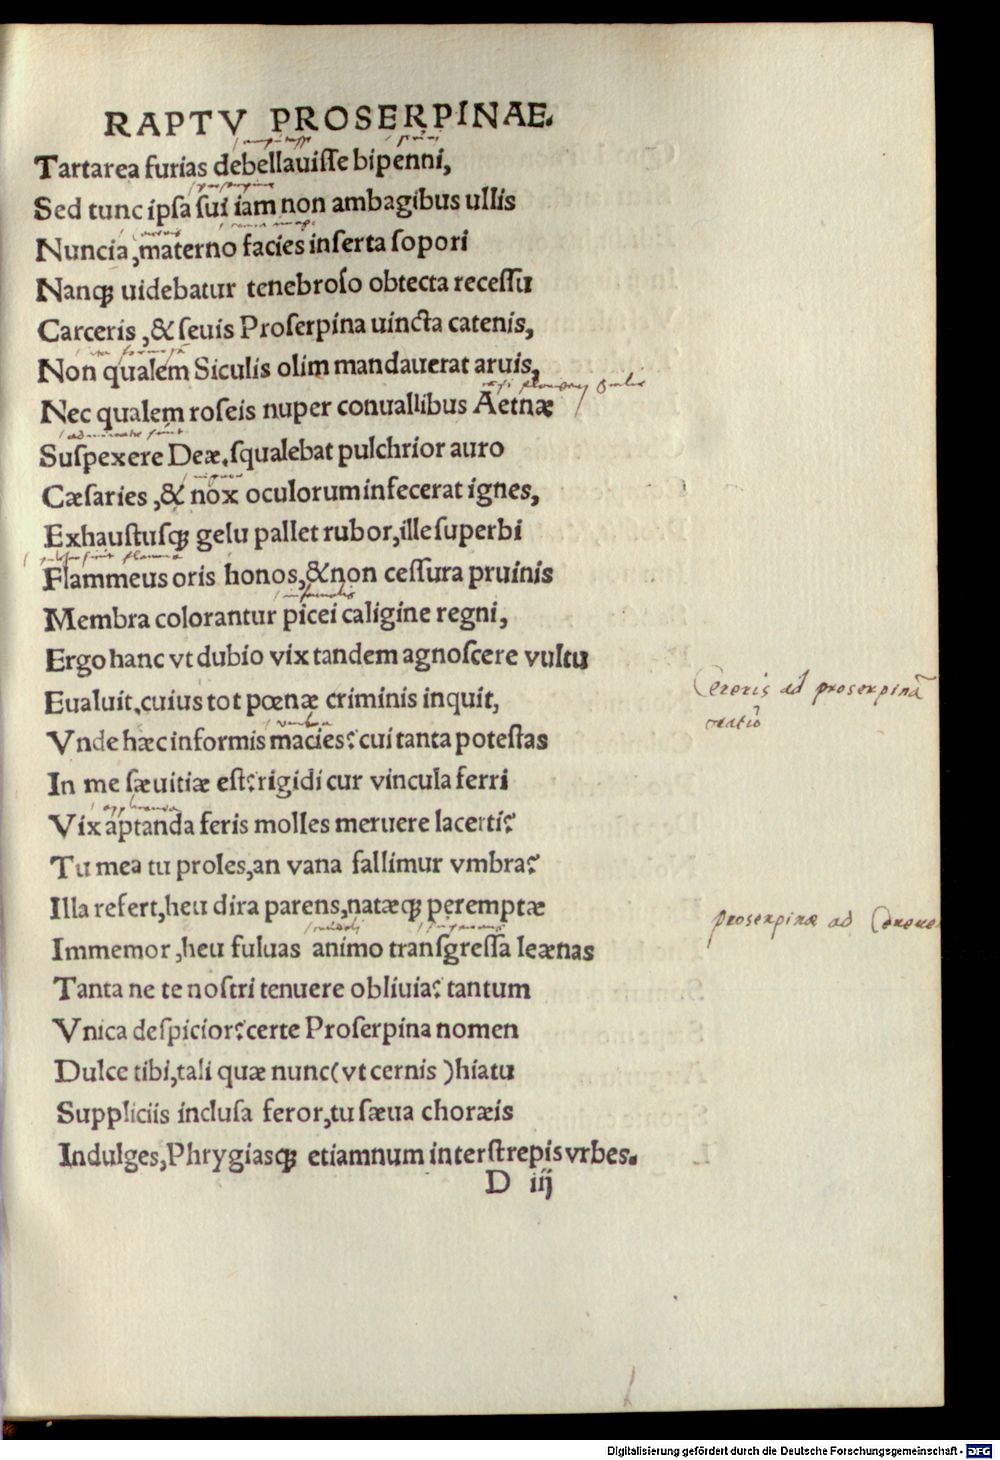 RAPTV PROSERPINAE.
Tartarea furias debellauiſſe bipenni,
Sed tunc ipſa ſui iam non ambagibus ullis
Nuncia, materno facies inſerta ſopori
Nanq; uidebatur tenebroſo obtecta receſſu
Carceris, & ſeuis Proſerpina uincta catenis,
Non qualem Siculis olim mandauerat aruis,
Nec qualem roſeis nuper conuallibus Aetnæ
Suſpexere Deæ. ſqualebat pulchrior auro
Cæſaries, & nox oculorum infecerat ignes,
Exhauſtuſq; gelu pallet rubor, ille ſuperbi
Flammeus oris honos, & non ceſſura pruinis
Membra colorantur picei caligine regni,
Ergo hanc vt dubio vix tandem agnoſcere vultu
Eualuit. cuius tot pœnæ criminis inquit,
Vnde hæc informis macies? cui tanta poteſtas
In me ſæuitiæ eſt? rigidi cur vincula ferri
Vix aptanda feris molles meruere lacerti?
Tu mea tu proles, an vana fallimur vmbra?
Illa refert, heu dira parens, natæq; peremptæ
Immemor, heu fuluas animo tranſgreſſa leænas
Tanta ne te noſtri tenuere obliuia? tantum
Vnica deſpicior? certe Proſerpina nomen
Dulce tibi, tali quæ nunc (vt cernis) hiatu
Suppliciis incluſa feror, tu ſæua choræis
Indulges, Phrygiasq; etiamnum interſtrepis vrbes.
D iij
Cereris ad proserpinā
oratio
proserpinæ ad
Digitalisierung gefördert durch die Deutsche Forschungsgemeinschaft - DFG